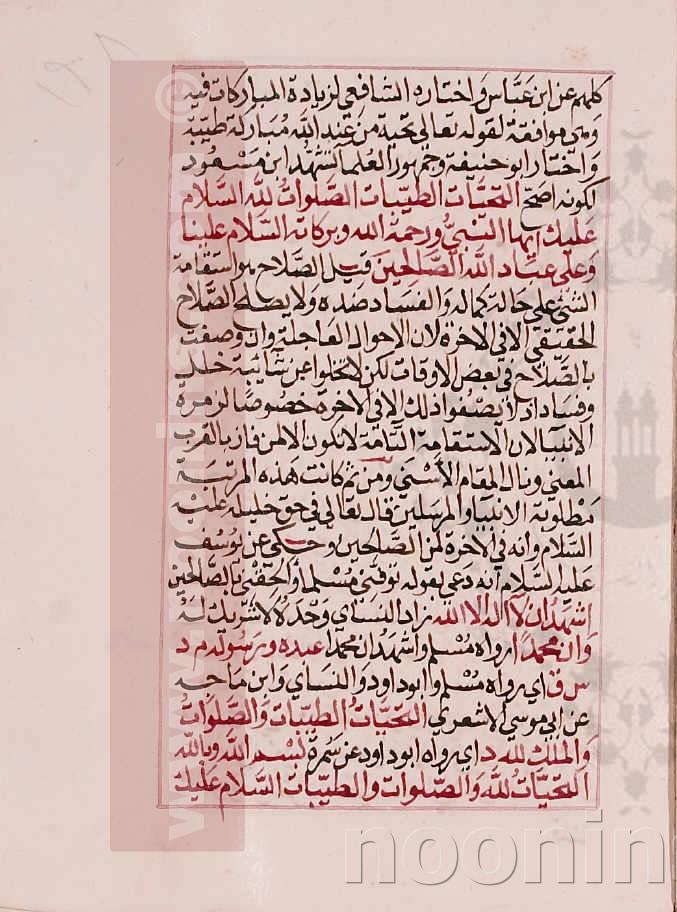 كلهم عن ابن عباس واختاره الشافعي لزيادة المباركات فيه
وهي موافقة لقوله تعالى تحية من عند الله مباركة طيبة
واختار ابو حنيفة وجمهور العلما تشهد ابن مسعود
لكونه اصح التحيات الطيبات الصلوات لله السلام
عليك ايها النبي ورحمة الله وبركاته السلام علينا
وعلى عباد الله الصالحين قيل الصلاح هو استقامة
الشئ على حالة كماله والفساد ضده ولا يصلح الصلاح
الحقيقي الا في الاخرة لان الاحوال العاجلة وان وصفت
بالصلاح في بعض الاوقات لكن لا تخلوا عن شائبة خلل
وفساد اذ لا يصفوا ذلك الا في الاخرة خصوصا لزمرة
الانبيا لان الاستقامة التامة لا تكون الا لمن فاز بالقرب
المعنى ونال المقام الاسنى ومن ثم كانت هذه المرتبة
مطلوبة الانبيا والمرسلين قال تعالى في حق خليله عليه
السلام وانه في الاخرة لمن الصالحين وحكى عن يوسف
عليه السلام انه دعى بقوله توفني مسلما والحقني بالصالحين
اشهد ان لا اله الا الله زاد النساي وحده لا شريك له
وان محمدا رواه مسلم واشهد ان محمدا عبده ورسوله م د
س ق اي رواه مسلم وابو داود والنساي وابن ماجه
عن ابي موسى الاشعري التحيات الطيبات والصلوات
والملك لله د اي رواه ابو داود عن سمرة بسم الله وبالله
التحيات لله والصلوات والطيبات السلام عليك
noonin